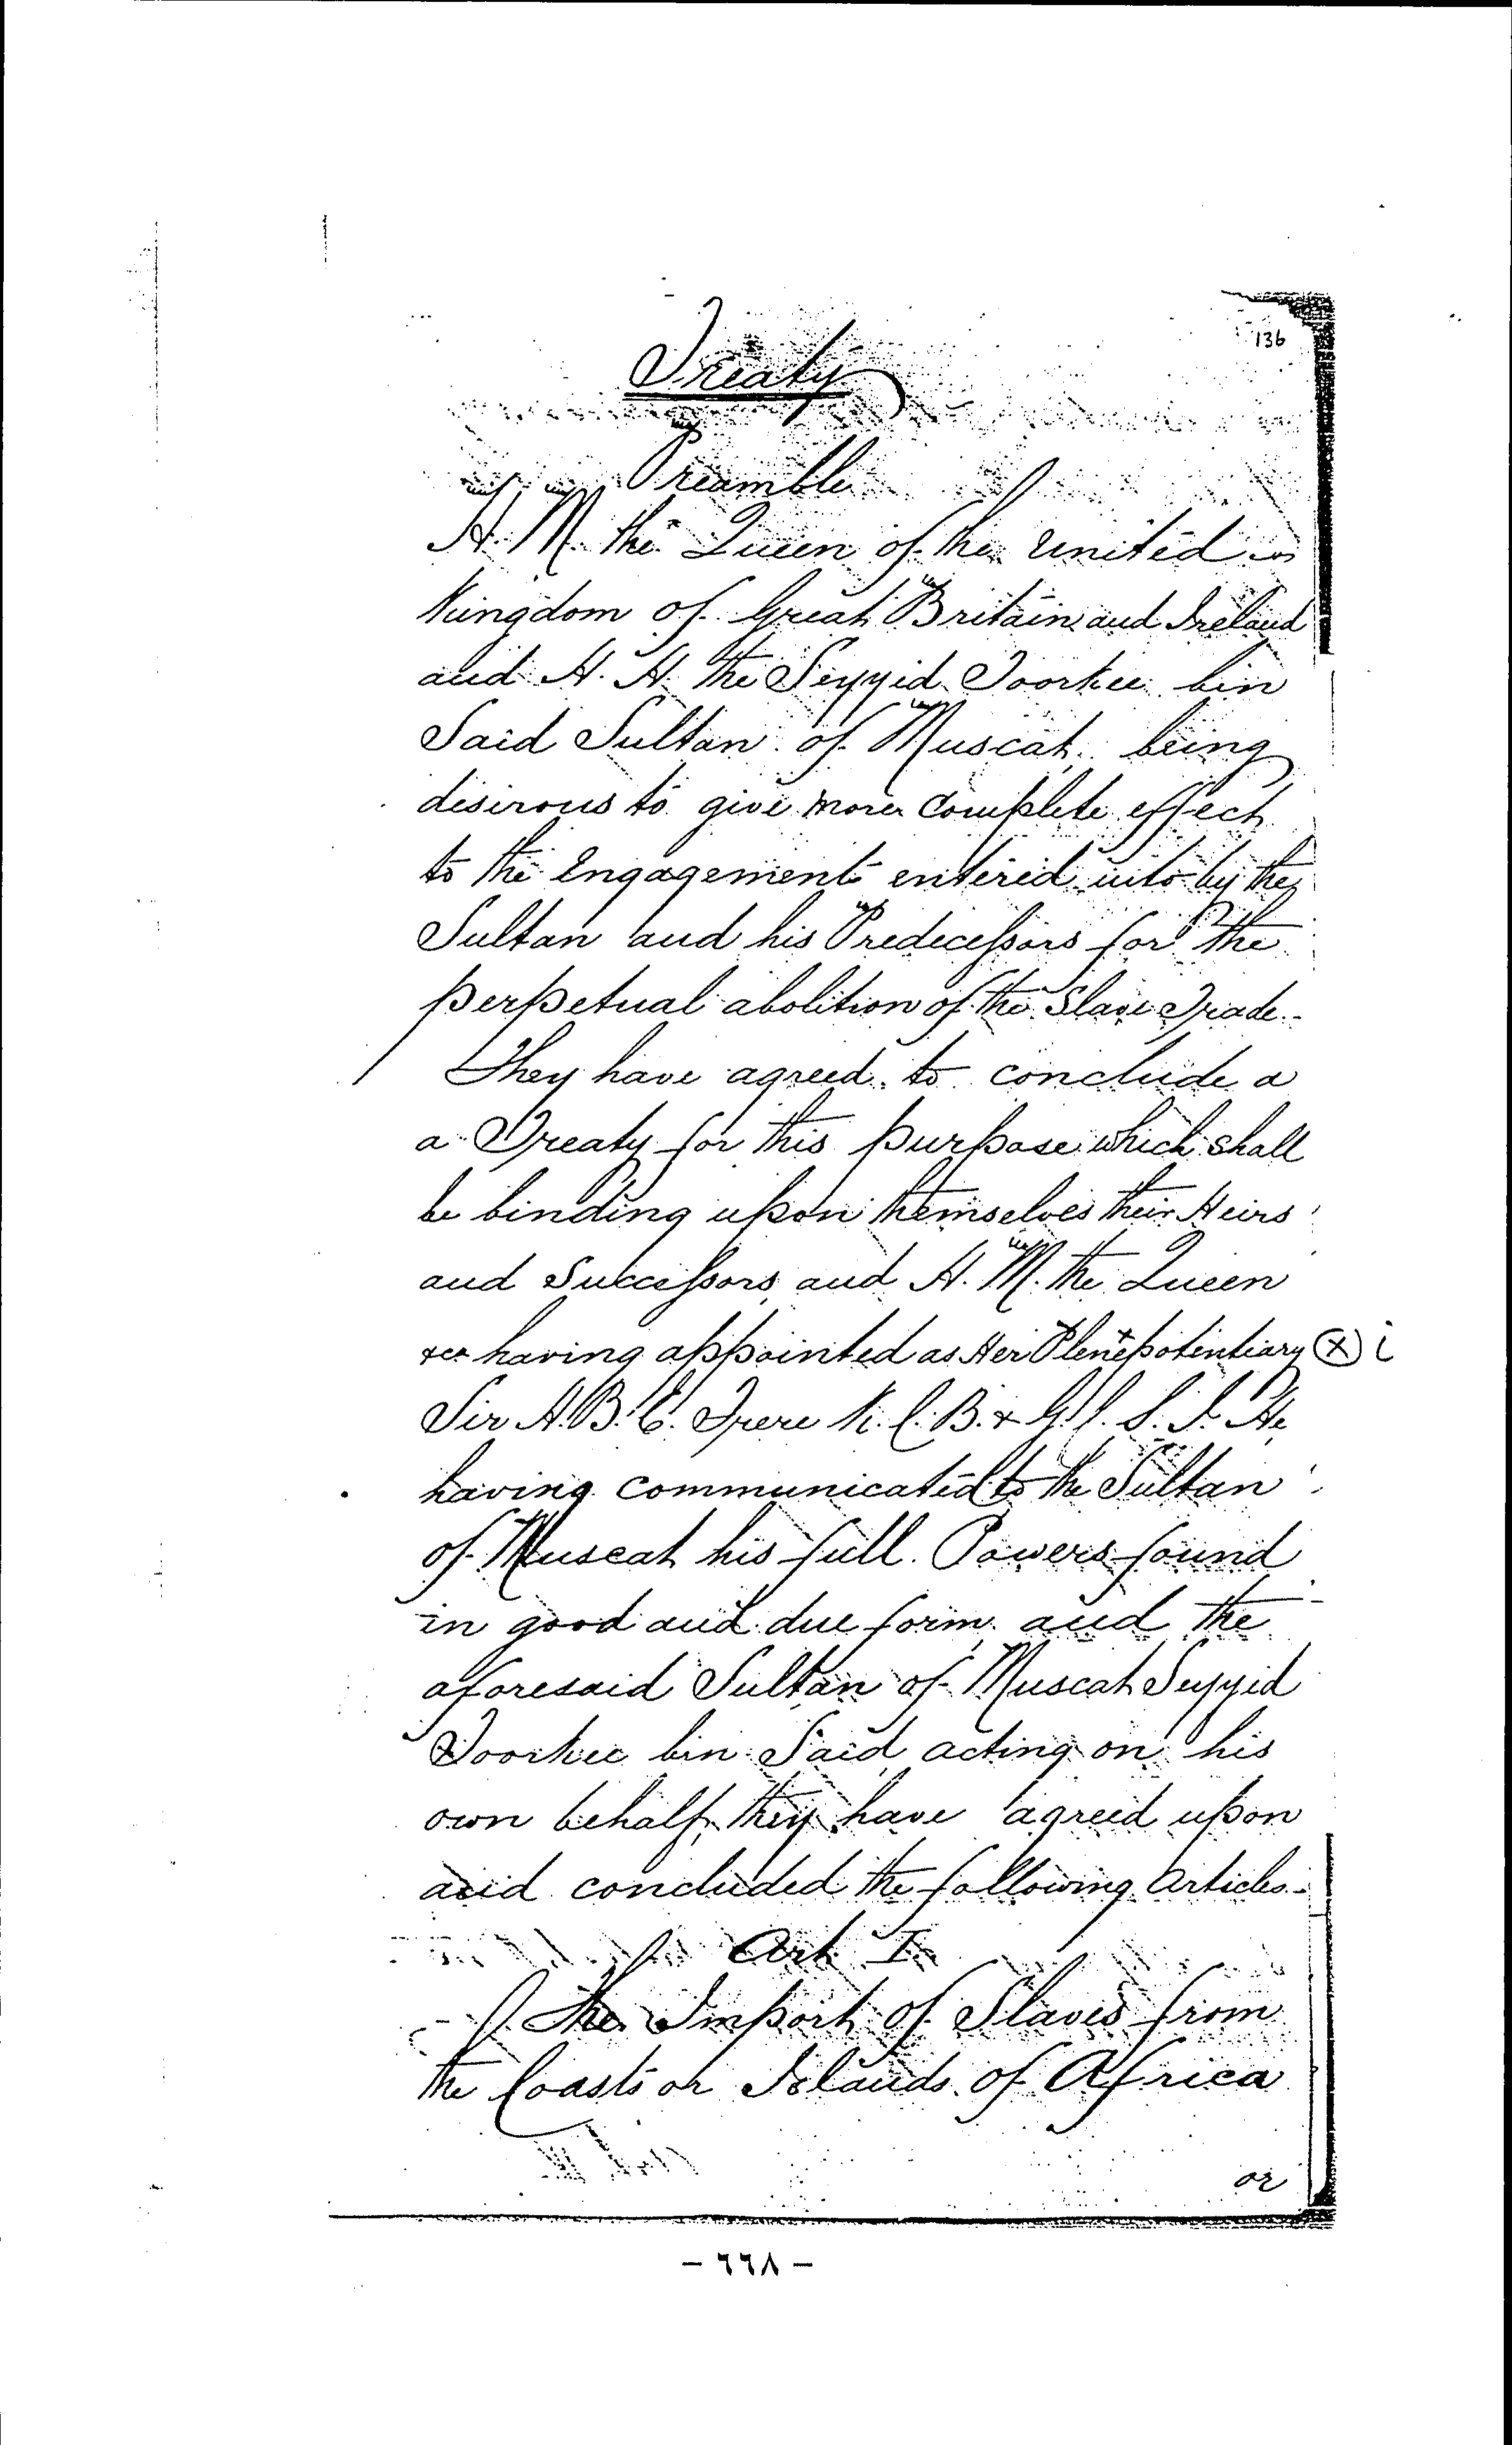 136
Treaty
Preamble
H. M. the Queen of the United
Kingdom of Great Britain and Ireland
and H. H. the Seyyid Toorkee bin
Said Sultan of Muscat being
desirous to give more complete effect
to the Engagements entered into by the
Sultan and his Predecessors for the
perpetual abolition of the Slave Trade.
They have agreed to conclude a
a Treaty for this purpose which shall
be binding upon themselves their Heirs
and Successors, and H. M. the Queen
having appointed as Her Plenepotentiary (x) i
Sir H. B. E. Frere K. C. B. & G. C. S. I. He
having communicated to the Sultan
of Muscat his full Powers found
in good and due form, and the
aforesaid Sultan of Muscat Seyyid
Toorkee bin Said, acting on his
own behalf, they have agreed upon
and concluded the following Articles.
Art I
The Import of Slaves from
the Coasts or Islands of Africa
or
- ٦٦٨ -